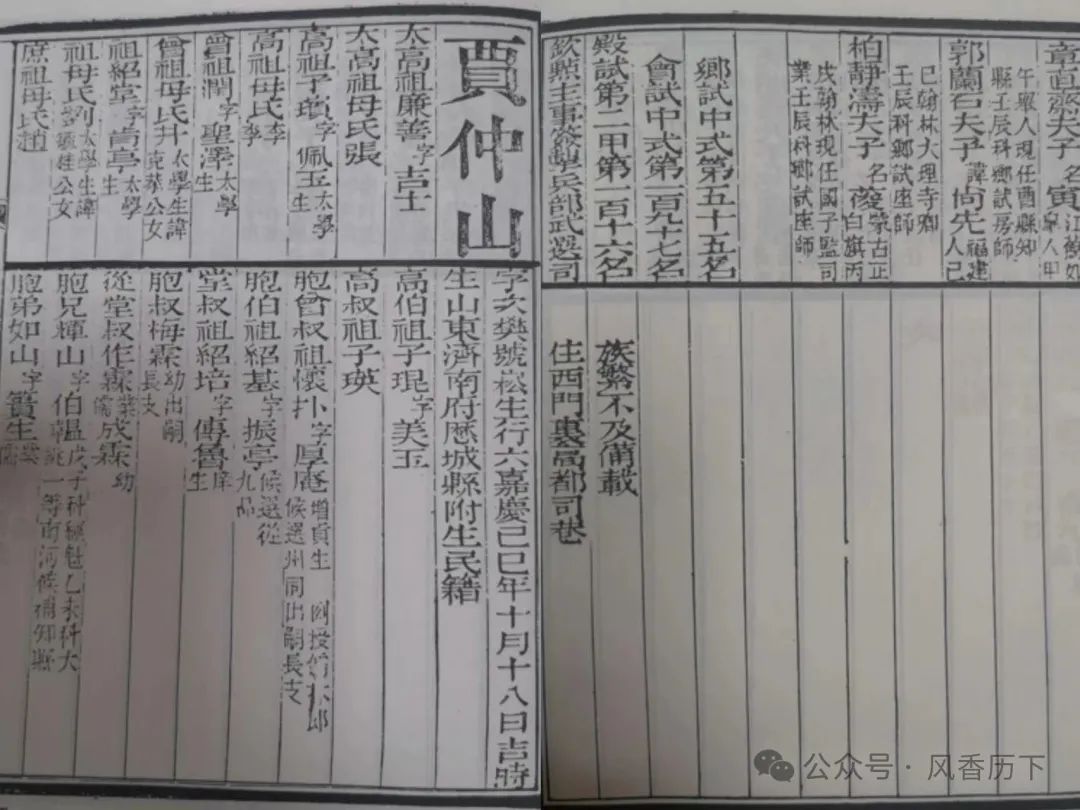 賈仲山
太高祖廉善字吉士
太高祖母氏張
高祖子瓚字佩玉太學生
高祖母氏李李
曾祖潤字聖澤太學生
曾祖母氏井太學生諱克莘公女
祖紹堂字肯亭太學生
祖母氏劉太學生諱毓桂公女
庶祖母氏趙
字次樊號崧生行六嘉慶己巳年十月十八日吉時
生山東濟南府歷城縣附生民籍
高伯祖子琨字美玉
高叔祖子瑛
胞曾叔祖懷扑字厚庵增貢生候選州同出嗣長支
胞伯祖紹基字振亭候選從九品
堂叔祖紹培字傳魯庠生
胞叔梅霖幼出嗣長支
從堂叔作霖業儒成霖幼
胞兄輝山字伯韞戊子科經魁乙未科大挑一等南河候補知縣
胞弟如山字簣生業儒
章直齋夫子名寅江蘇如皋人甲午舉人現任酉縣知縣壬辰科鄉試房師
郭蘭石夫子諱尚先福建人己巳翰林大理寺卿壬辰科鄉試座師
柏靜濤夫子名葰蒙古正白旗丙戌翰林現任國子監司業壬辰科鄉試座師
鄉試中式第五十五名
會試中式第一百九十七名
殿試第二甲第一百十六名
欽點主事簽掣兵部武選司
族繁不及備載
住西門裏高都司巷
公众号 · 风香历下